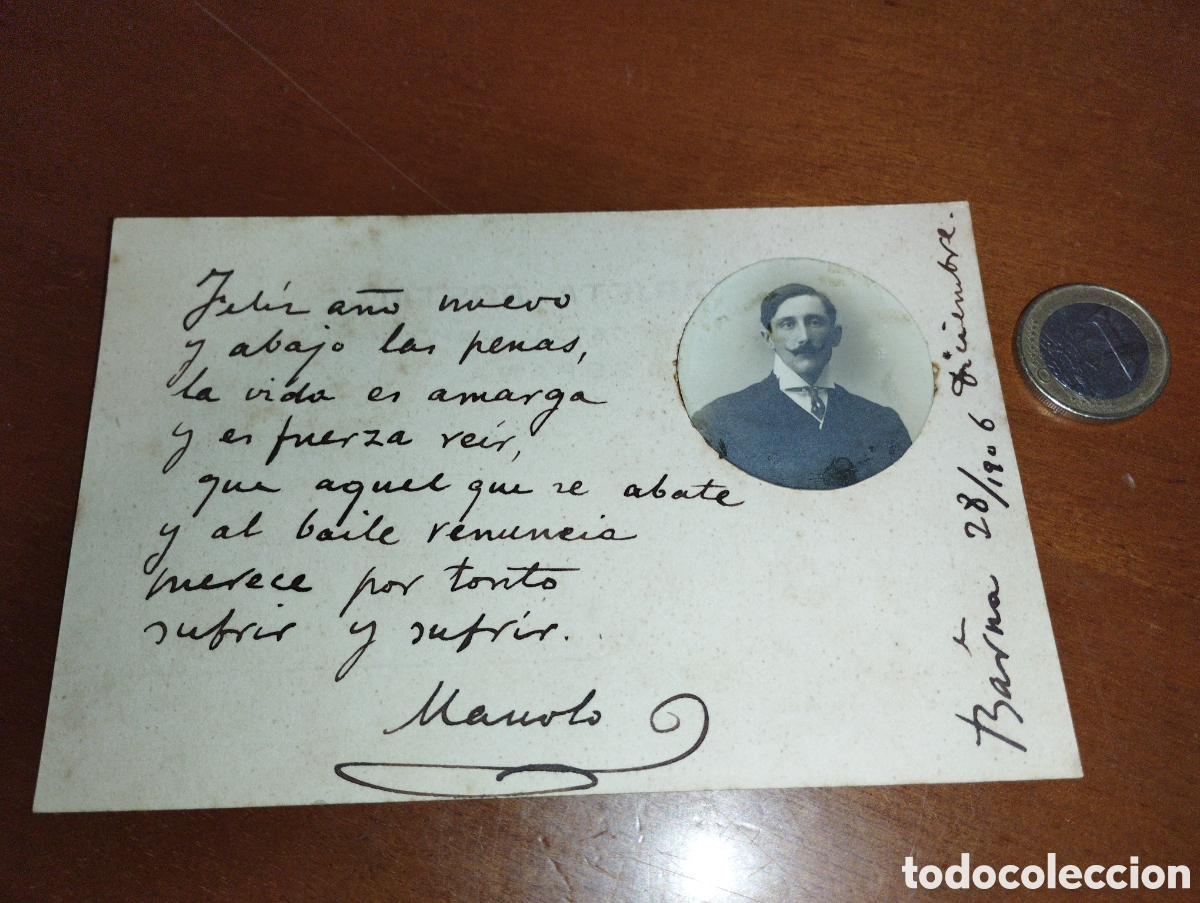 Feliz año nuevo
y abajo las penas,
la vida es amarga
y es fuerza reír,
que aquel que se abate
y al baile renuncia
merece por tonto
sufrir y sufrir.
Manolo
Barna 28/1906 Diciembre.
todocoleccion